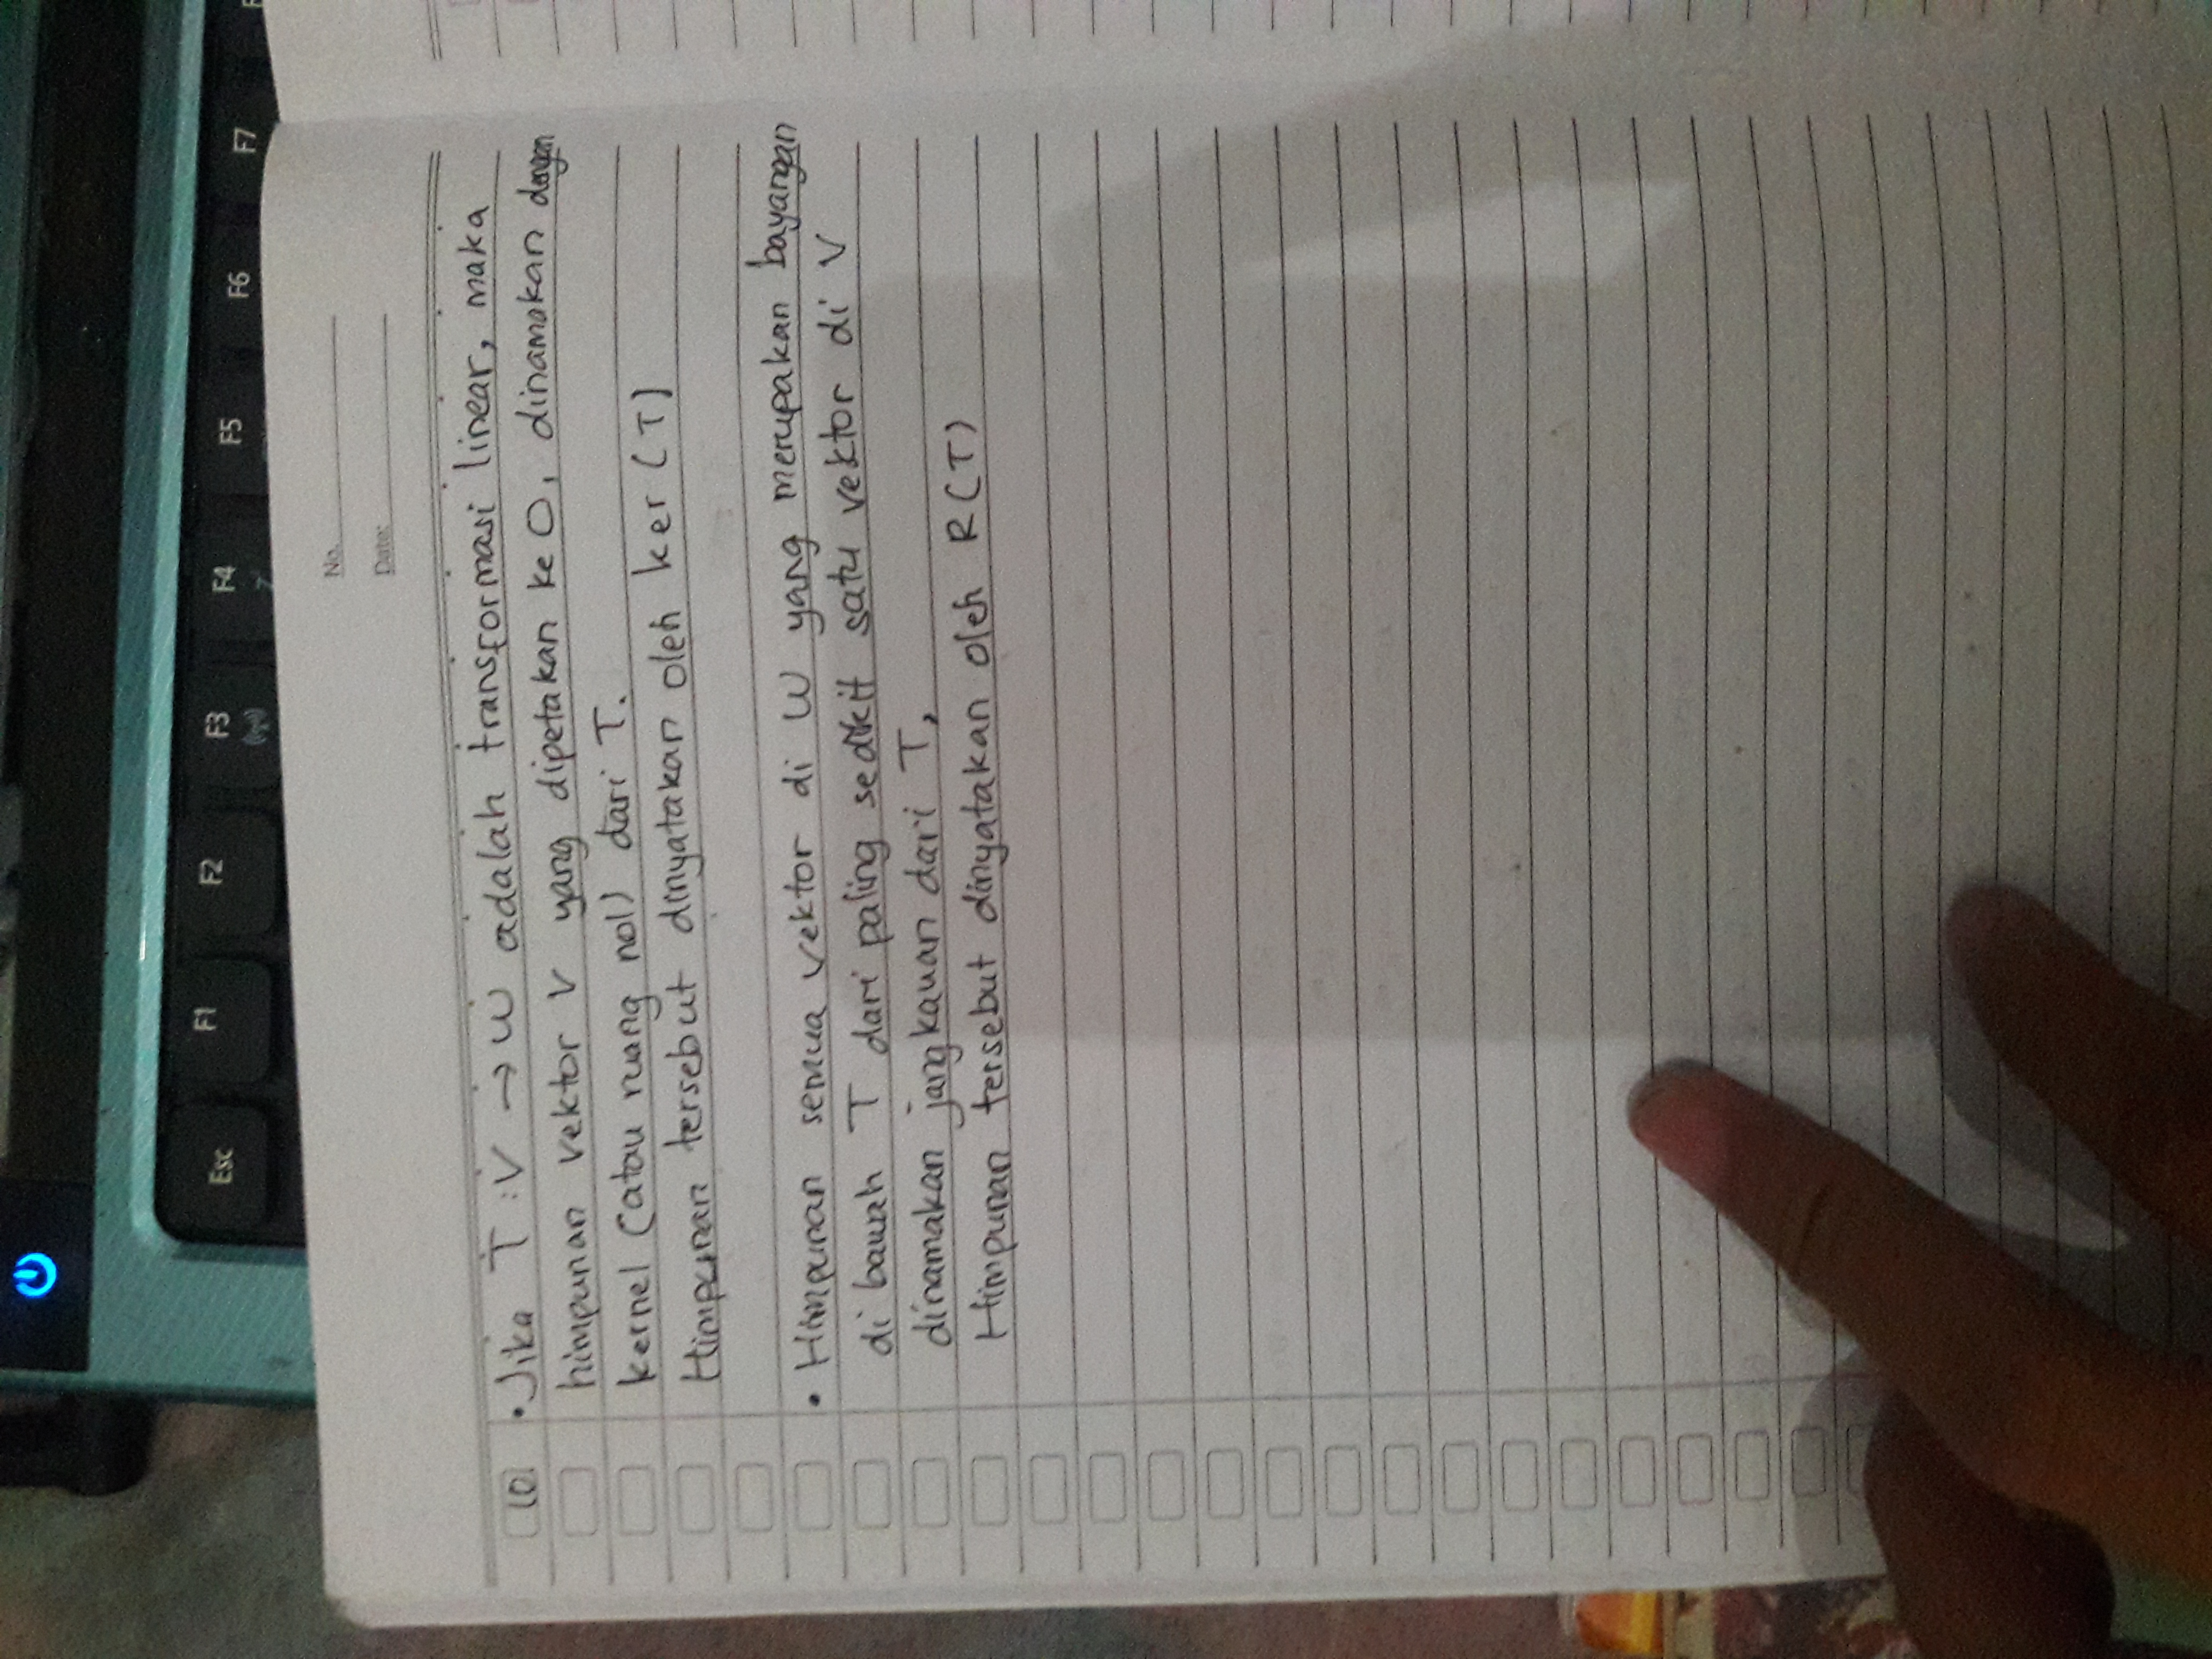 Esc F1 F2 F3 F4 F5 F6 F7
No.
Date:
10. • Jika T : V → W adalah transformasi linear, maka
himpunan vektor V yang dipetakan ke 0, dinamakan dengan
kernel (atau ruang nol) dari T.
Himpunan tersebut dinyatakan oleh ker (T)
• Himpunan semua vektor di W yang merupakan bayangan
di bawah T dari paling sedikit satu vektor di V
dinamakan jangkauan dari T,
Himpunan tersebut dinyatakan oleh R(T)